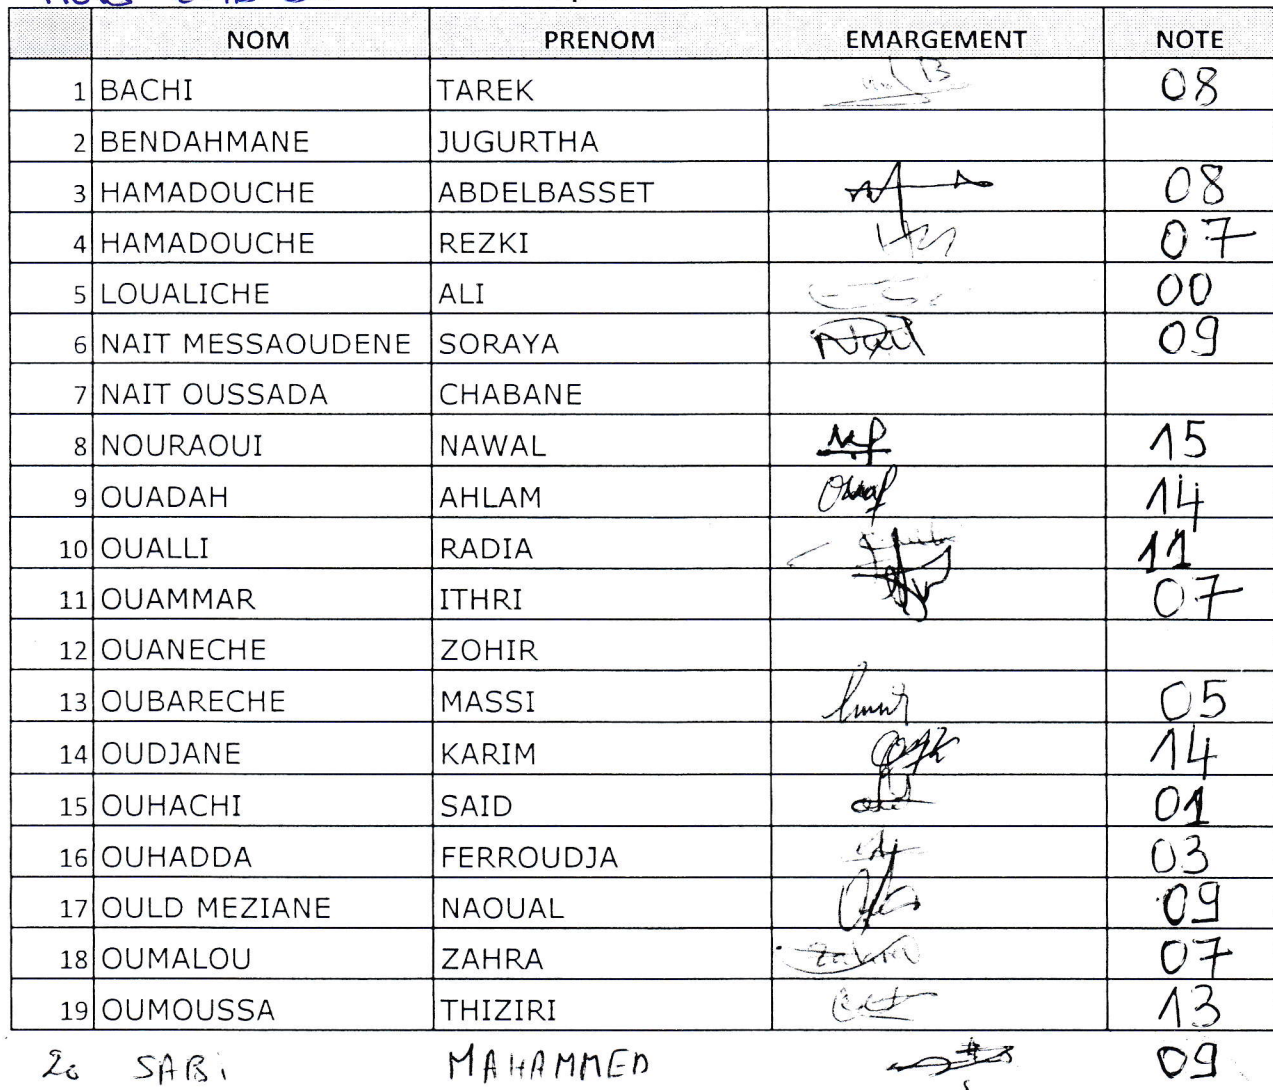 NOM PRENOM EMARGEMENT NOTE
1 BACHI TAREK 08
2 BENDAHMANE JUGURTHA
3 HAMADOUCHE ABDELBASSET 08
4 HAMADOUCHE REZKI 07
5 LOUALICHE ALI 00
6 NAIT MESSAOUDENE SORAYA 09
7 NAIT OUSSADA CHABANE
8 NOURAOUI NAWAL 15
9 OUADAH AHLAM 14
10 OUALLI RADIA 11
11 OUAMMAR ITHRI 07
12 OUANECHE ZOHIR
13 OUBARECHE MASSI 05
14 OUDJANE KARIM 14
15 OUHACHI SAID 01
16 OUHADDA FERROUDJA 03
17 OULD MEZIANE NAOUAL 09
18 OUMALOU ZAHRA 07
19 OUMOUSSA THIZIRI 13
20 SABi MAHAMMED 09